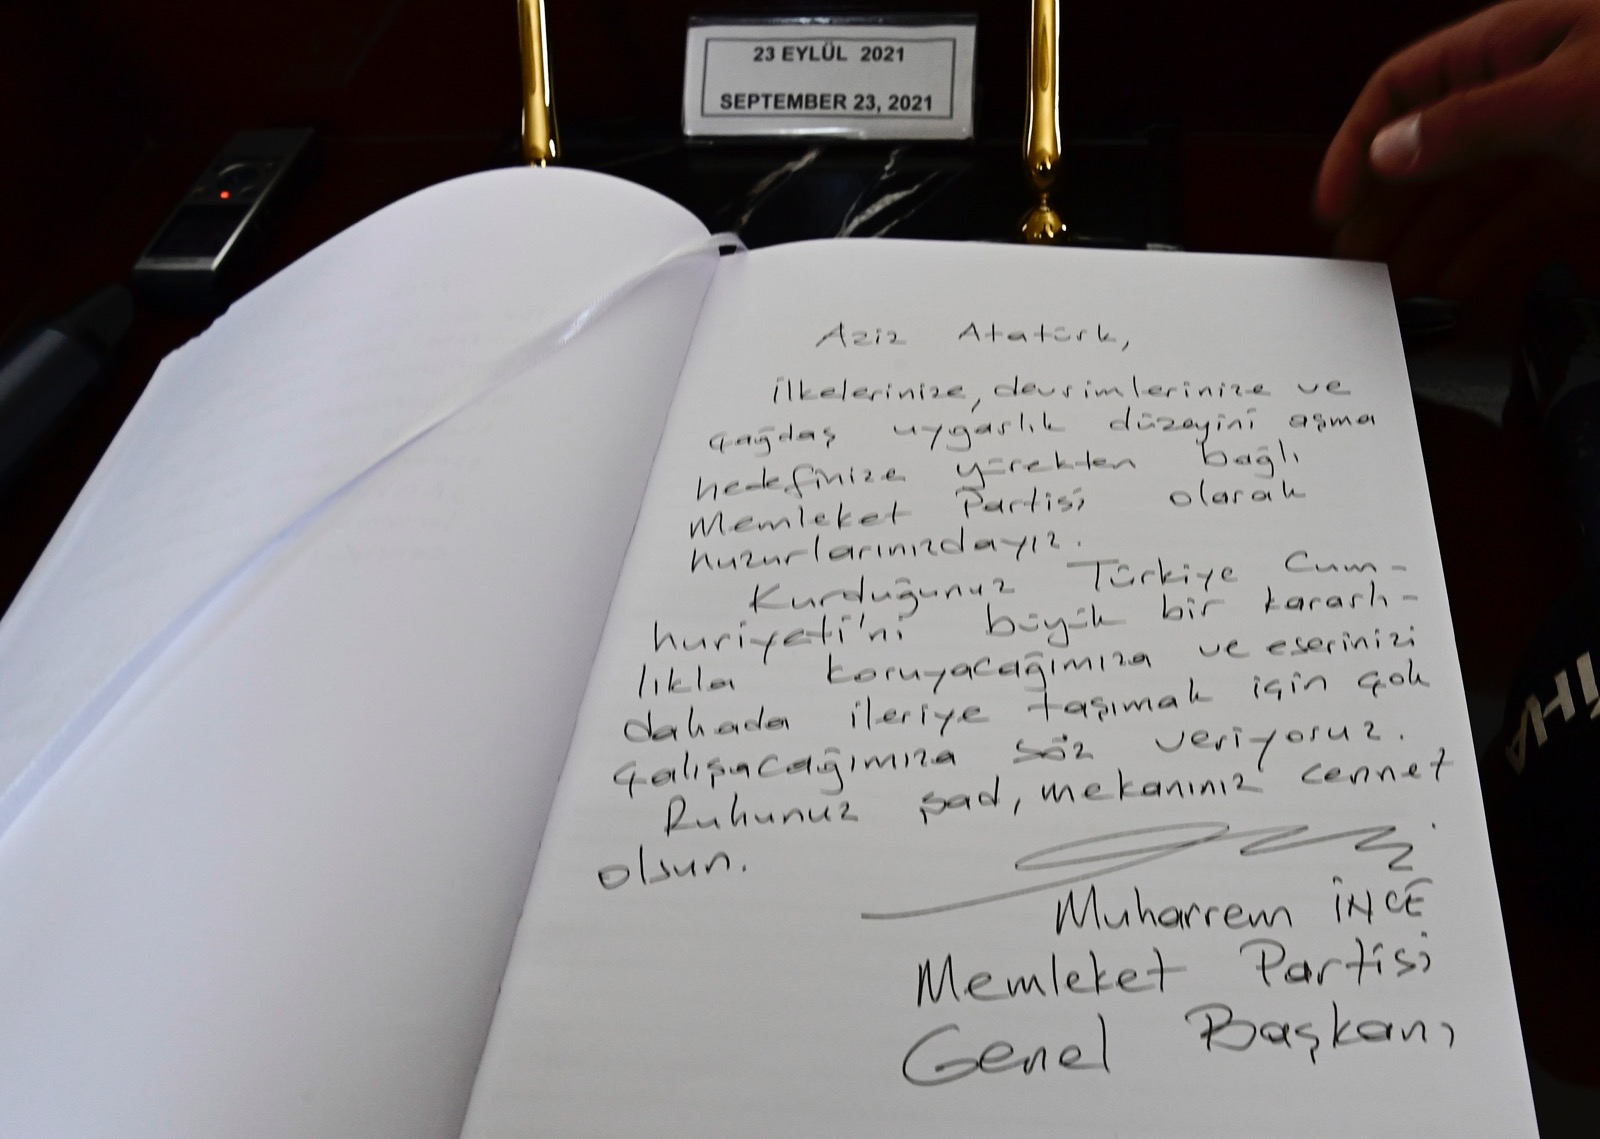 23 EYLÜL 2021
SEPTEMBER 23, 2021
Aziz Atatürk,
İlkelerinize, devrimlerinize ve
çağdaş uygarlık düzeyini aşma
hedefinize yürekten bağlı
Memleket Partisi olarak
huzurlarınızdayız.
Kurduğunuz Türkiye Cum-
huriyeti'ni büyük bir kararlı-
lıkla koruyacağımıza ve eserinizi
dahada ileriye taşımak için çok
çalışacağımıza söz veriyoruz.
Ruhunuz şad, mekanınız cennet
olsun.
Muharrem İNCE
Memleket Partisi
Genel Başkanı
İHA